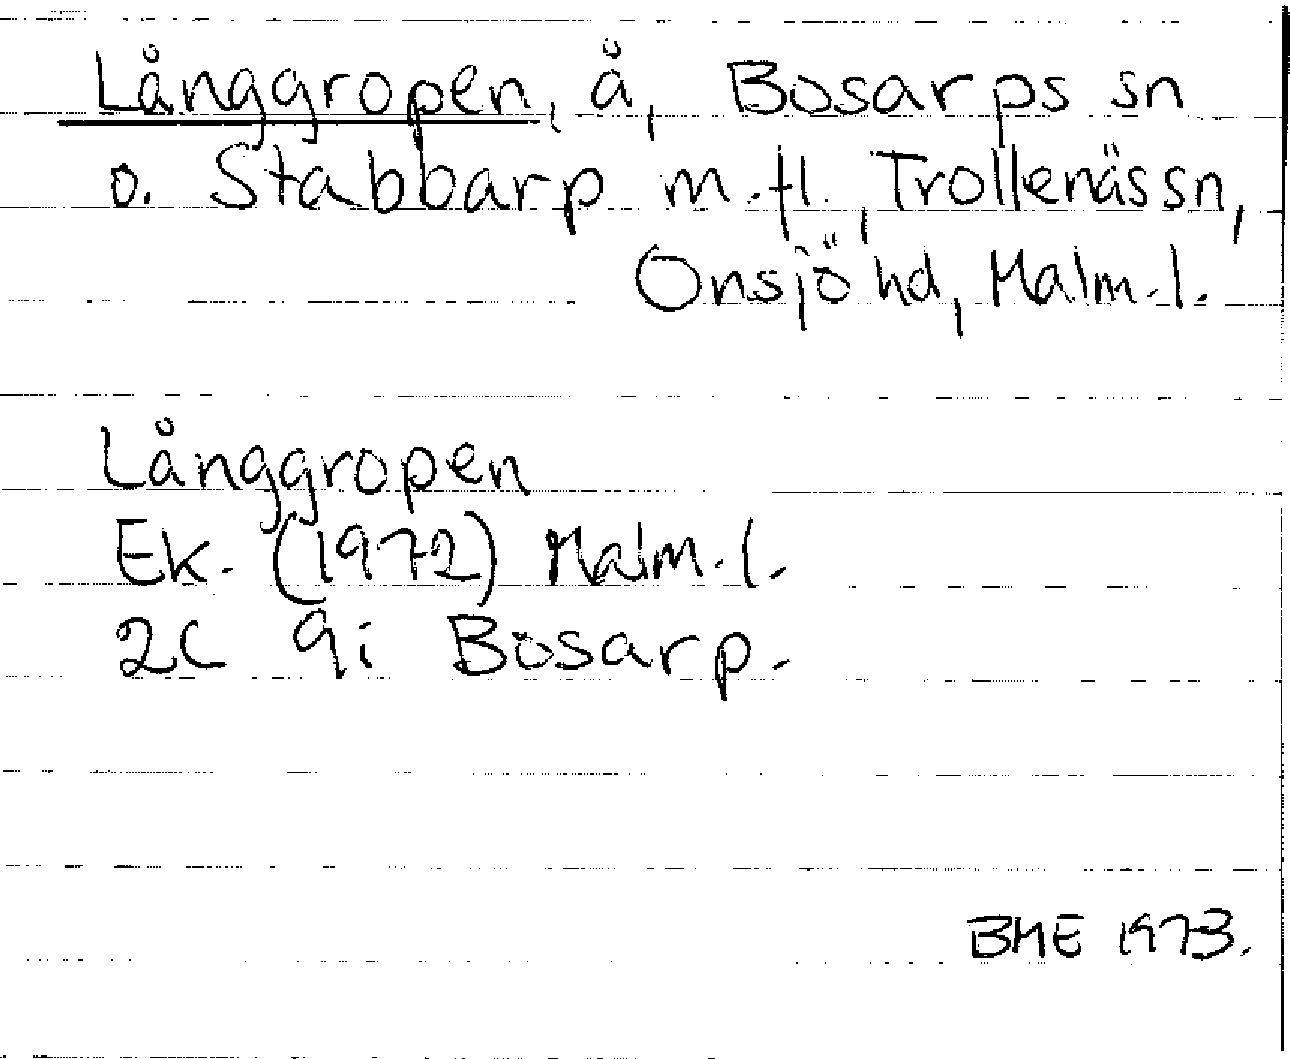 Långgropen, å, Bosarps sn
o. Stabbarp m.fl., Trollenäs sn,
Onsjö hd, Malm.l.
Långgropen
Ek. (1972) Malm.l.
2C 9i Bosarp.
BME 1973.